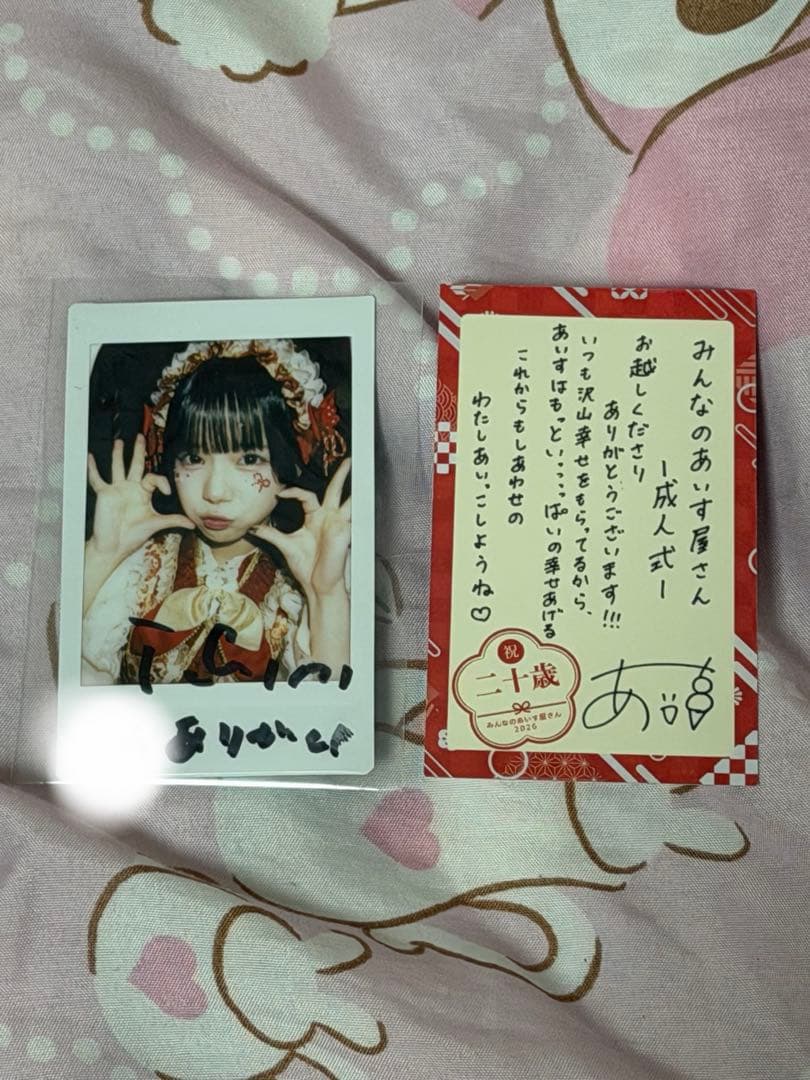 ありがとう
みんなのあいす屋さん
ー成人式ー
お越しくださり
ありがとうございます!!!
いつも沢山幸せをもらってるから、
あいすはもっといっっっぱいの幸せあげる
これからもしあわせの
わたしあいっこしようね♡
祝
二十歳
みんなのあいす屋さん
2026